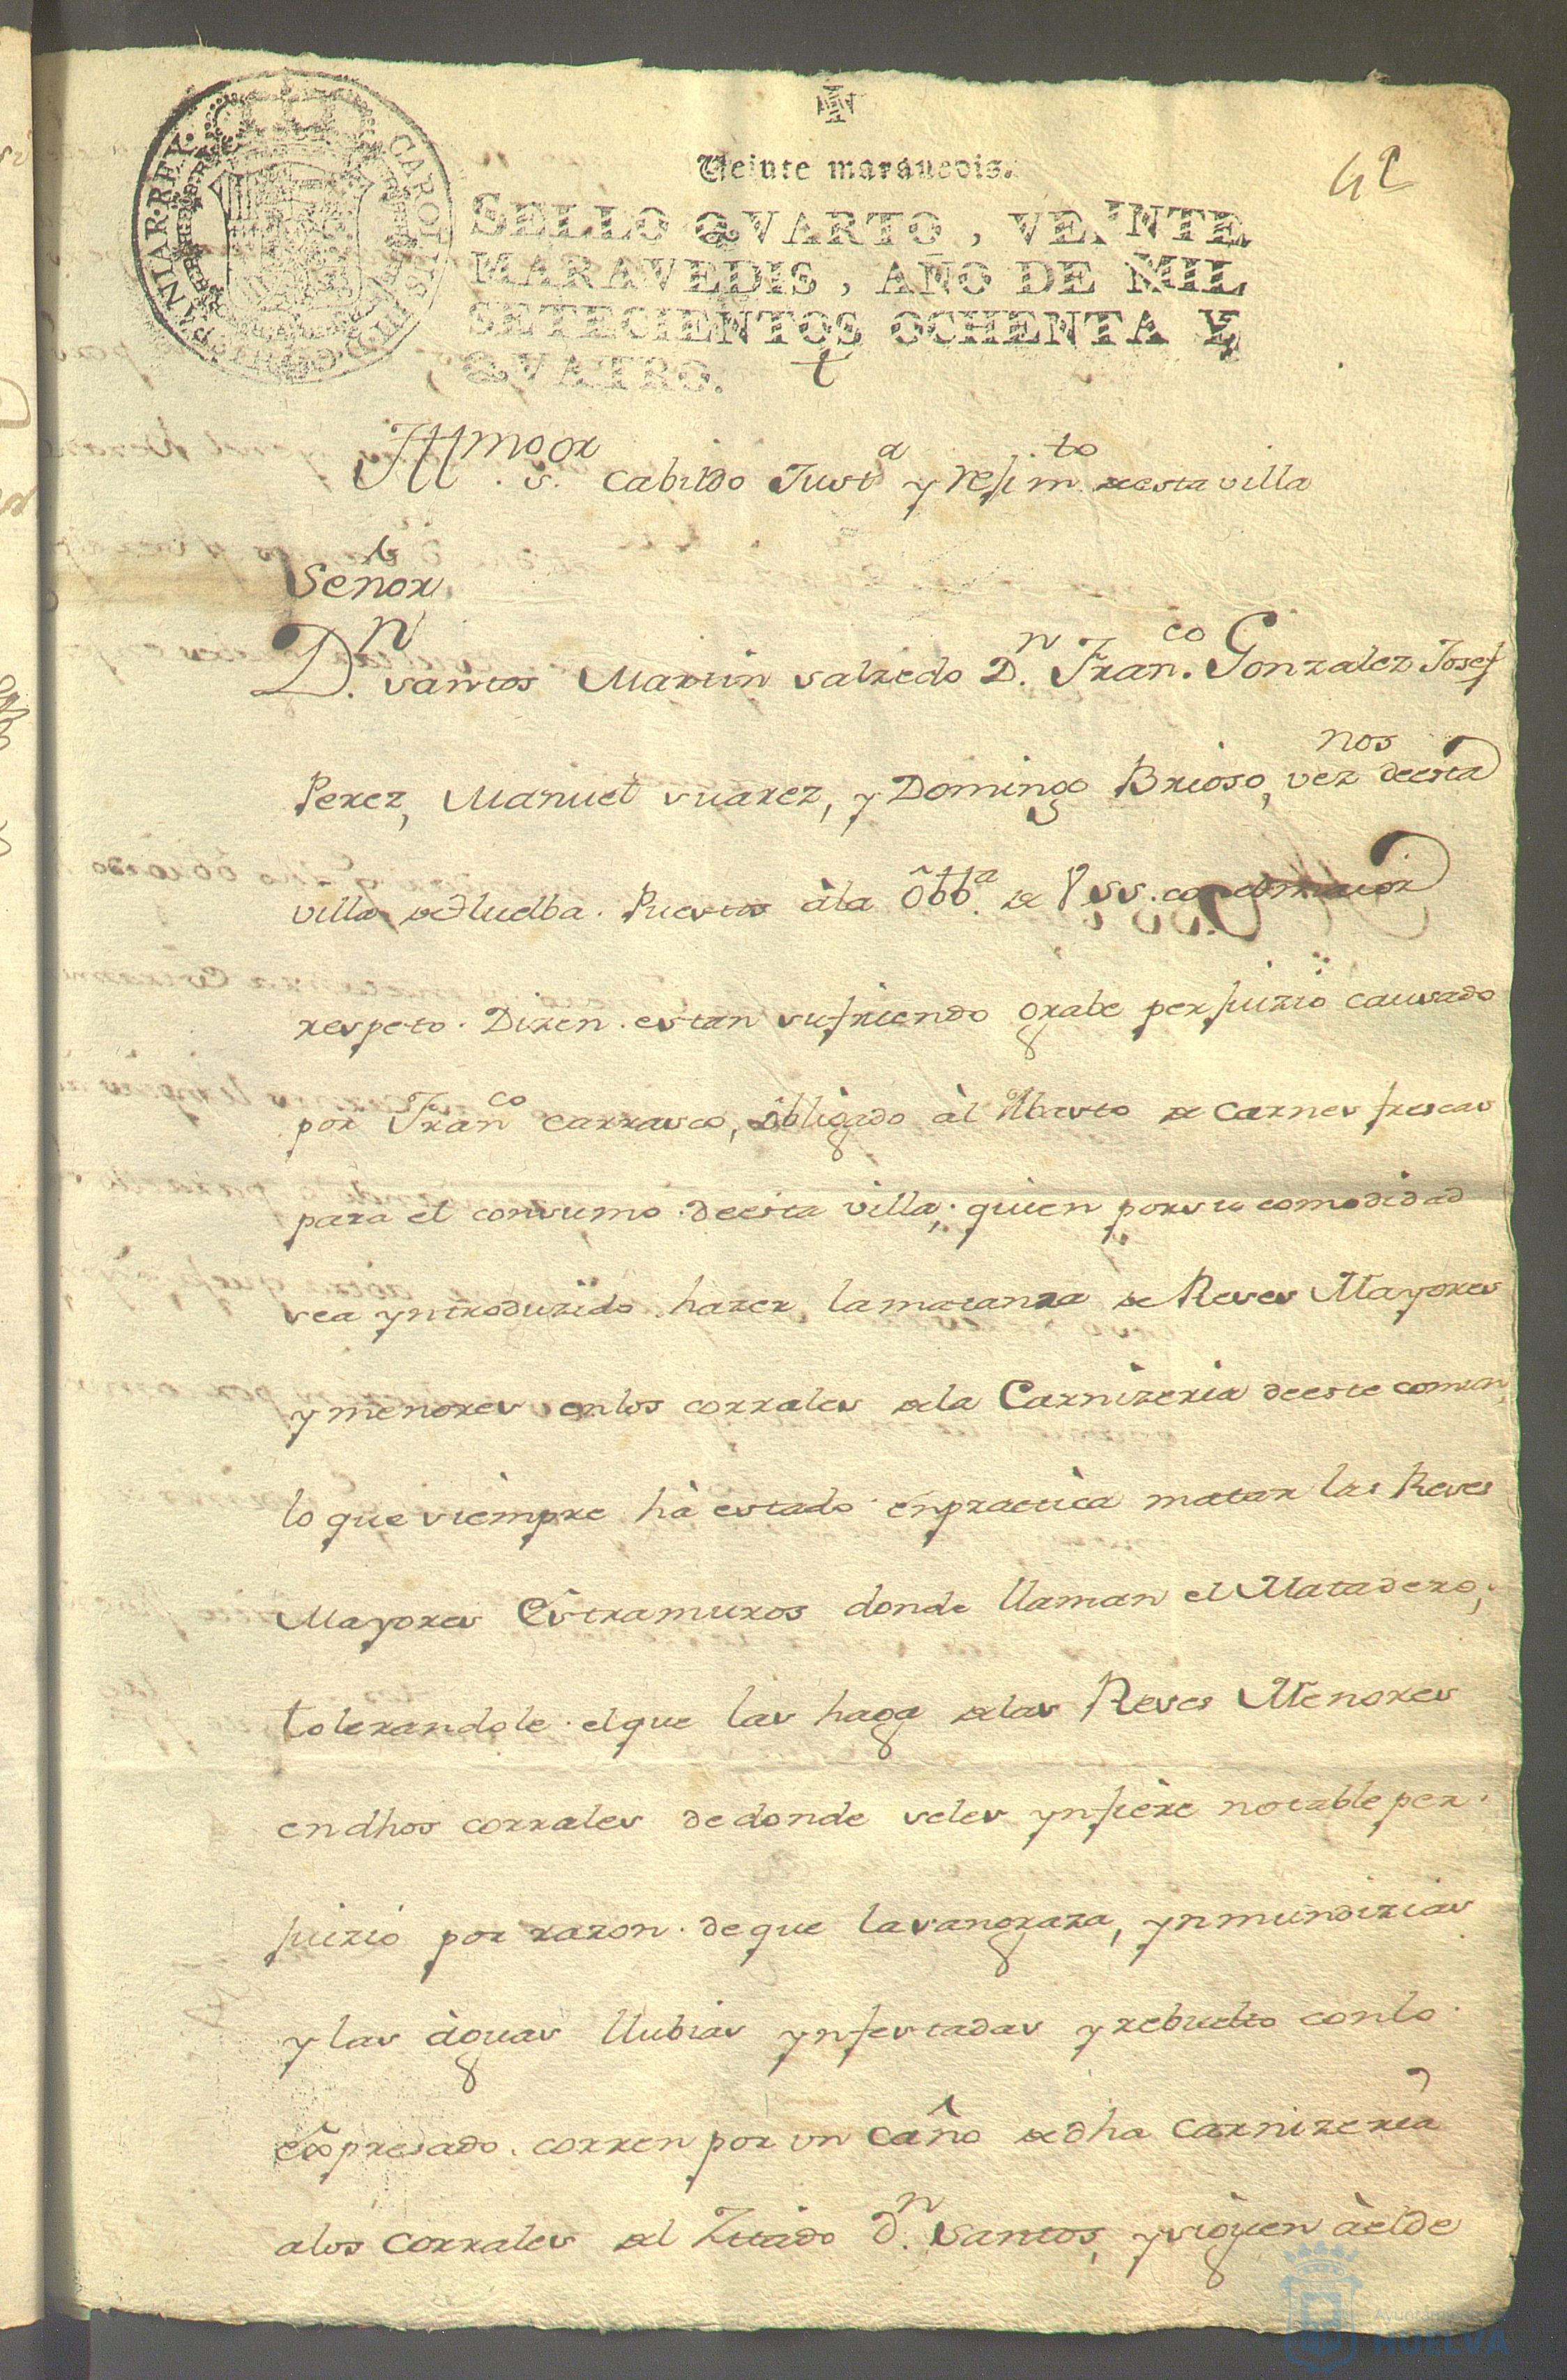 Veinte marauedis.
42
SELLO QVARTO, VEINTE
MARAVEDIS, AÑO DE MIL
SETECIENTOS OCHENTA Y
QVATRO.
CAROLUS III D G HISPANIAR REX
Illmo. sor. cabildo Justa y rejimto de esta villa
Señor
Dn. santos Martin salzedo Dn. Franco. Gonzalez Josef
Perez, Manuel suarez, y Domingo Brioso, veznos deesta
villa de Huelba. Puestos àla Obba. de V ss. con el maior
respeto. Dizen. estan sufriendo grabe perjuizio causado
por Franco carrasco, obligado àl Abasto de carnes frescas
para el consumo deesta villa; quien porsu comodidad
sea yntroduzido hazer lamatanza de Reses Mayores
y menores enlos corrales dela Carnizeria deeste comun,
lo que siempre hà estado enpractica matar las Reses
Mayores Estramuros donde llaman el Matadero,
tolerandole elque las haga delas Reses Menores
endhos corrales dedonde seles ynfiere notable per
juizio por razon. deque lasangraza, ynmundizias
y las àguas llubias ynfestadas y rebuelto conlo
expresado. corren por un caño de dha carnizeria
alos corrales del Zitado dn. santos, ysiguen àelde
Ayuntamiento
HUELVA